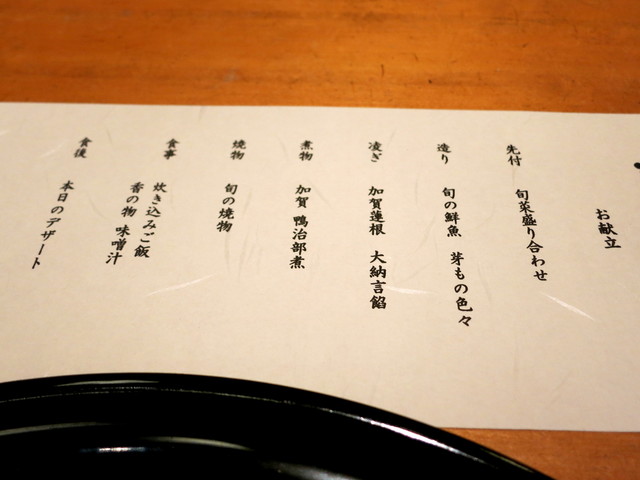 お献立
先付 旬菜盛り合わせ
造り 旬の鮮魚 芽もの色々
凌ぎ 加賀蓮根 大納言餡
煮物 加賀 鴨治部煮
焼物 旬の焼物
食事 炊き込みご飯
香の物 味噌汁
食後 本日のデザート